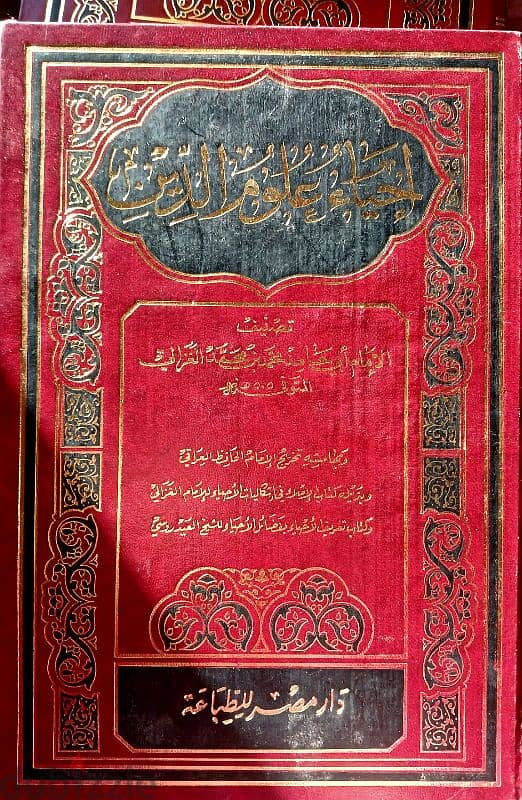 إحياء علوم الدين
تصنيف
الإمام أبي حامد محمد بن محمد الغزالي
المتوفى ٥٠٥ هـ
وبهامشه تخريج الإمام الحافظ العراقي
وبذيله كتاب الإملاء في إشكالات الأحياء للإمام الغزالي
وكتاب تعريف الأحياء بفضائل الأحياء للشيخ العيدروسي
دار مصر للطباعة